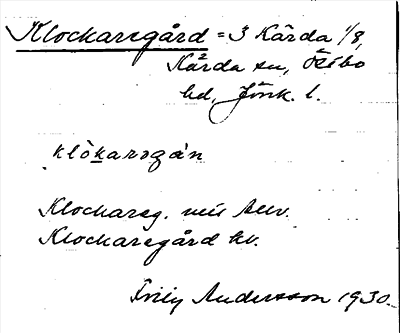 Klockaregård = 3 Kärda 1/8,
Kärda sn, Östbo
hd, Jönk. l.
klòkarᴐgán
Klockareg.
Klockaregård kv.
Andersson 1930.